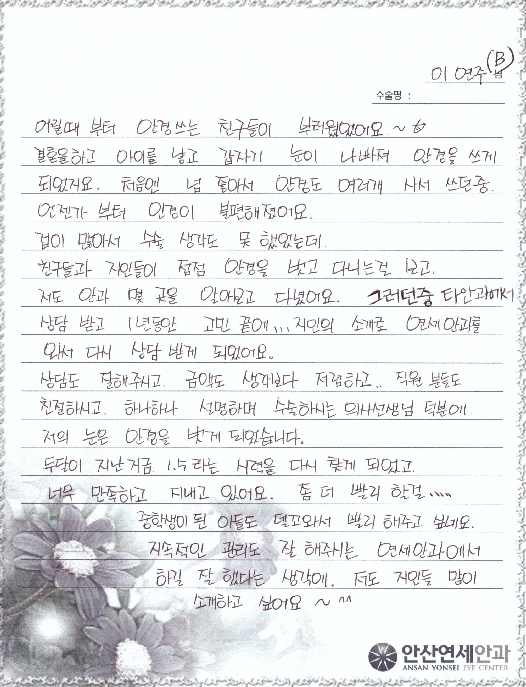 이 연주 (B)
수술명 :
어릴때 부터 안경쓰는 친구들이 부러웠었어요 ~
결혼을하고 아이를 낳고 갑자기 눈이 나빠져 안경을 쓰게
되었거요. 처음엔 넘 좋아서 안경도 여러개 사서 쓰던중.
언젠가 부터 안경이 불편해졌어요.
겁이 많아서 수술 생각도 못 했었는데.
친구들과 지인들이 점점 안경을 벗고 다니는걸 보고.
저도 안과 몇 곳을 알아보고 다녔어요. 그러던중 타안과에서
상담 받고 1년동안 고민 끝에... 지인의 소개로 연세안과를
와서 다시 상담 받게 되었어요.
상담도 잘해주시고. 금액도 생각보다 저렴하고.. 직원 분들도
친절하시고. 하나하나 설명하며 수술하시는 의사선생님 덕분에
저의 눈은 안경을 벗게 되었습니다.
두달이 지난지금 1.5 라는 시력을 다시 찾게 되었고.
너무 만족하고 지내고 있어요. 좀 더 빨리 할걸....
중학생이 된 아들도 데리고와서 빨리 해주고 싶네요.
지속적인 관리도 잘 해주시는 연세안과에서
하길 잘 했다는 생각에. 저도 지인들 많이
소개하고 싶어요 ~ ^^
안산연세안과
ANSAN YONSEI EYE CENTER